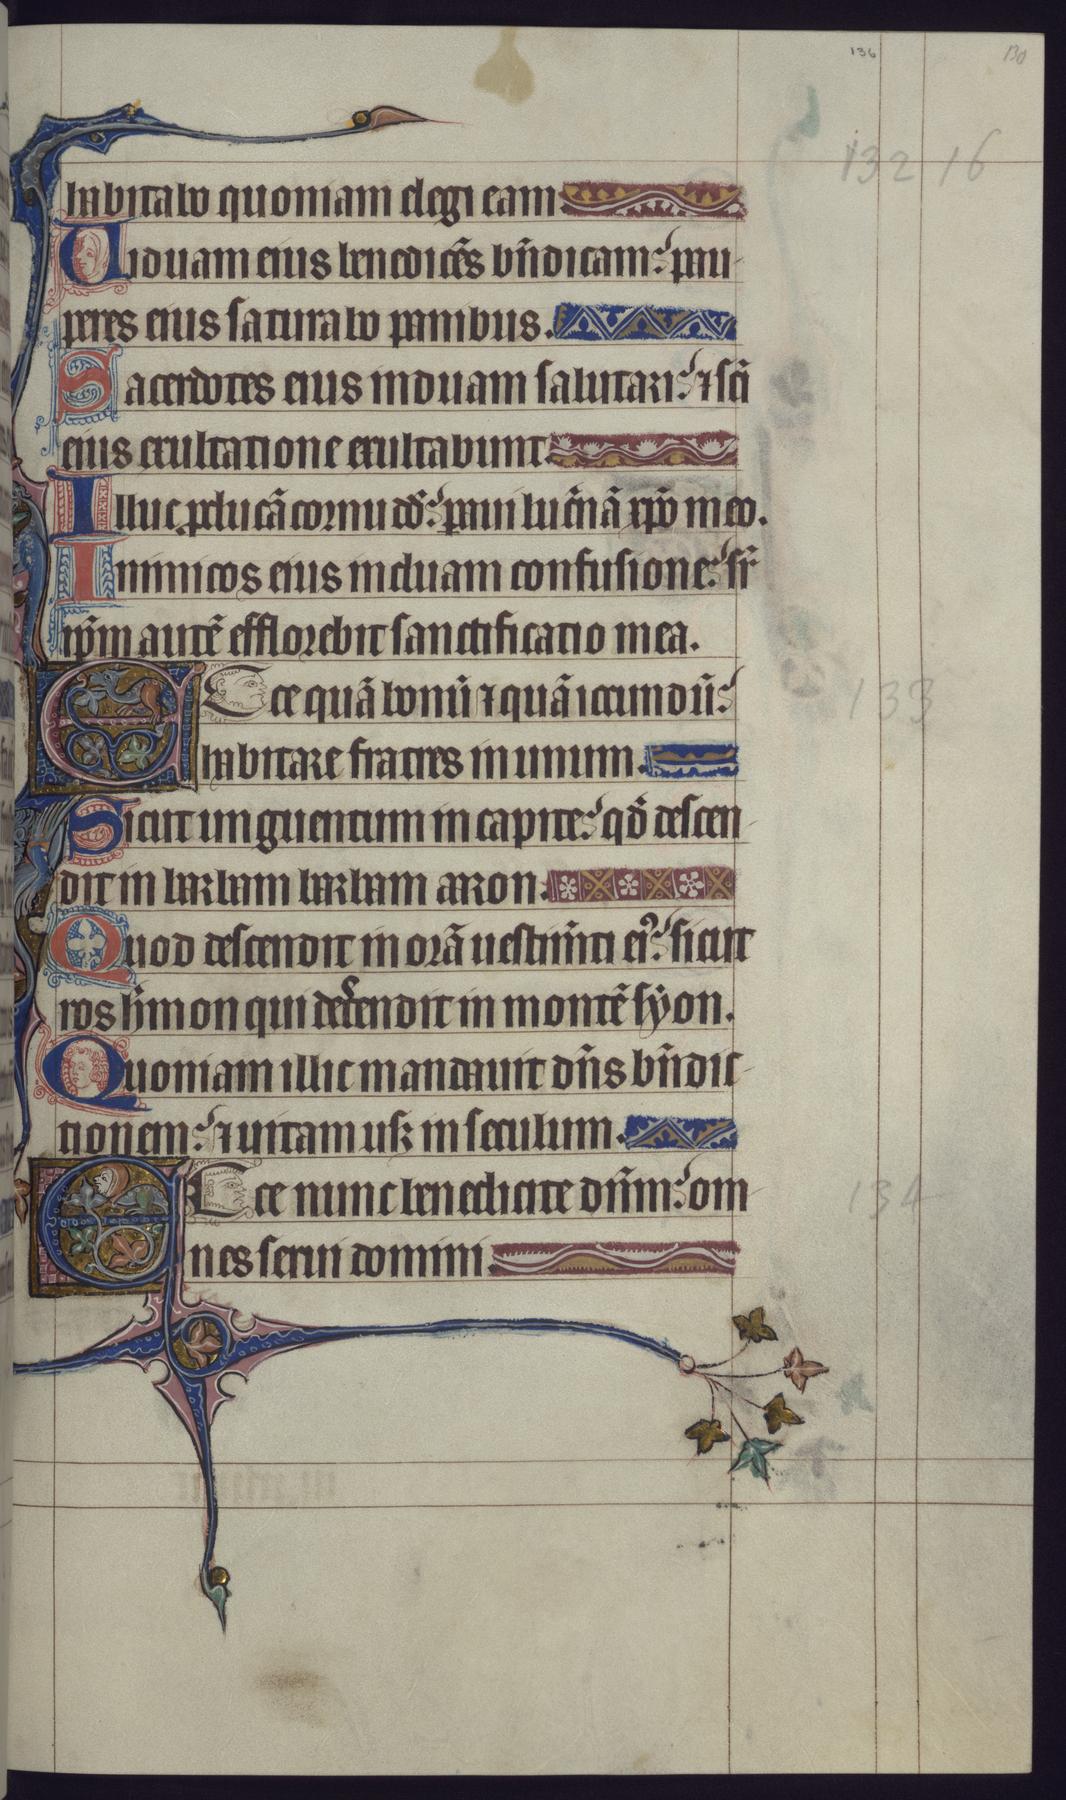 136 130
132 16
habitabo quoniam elegi eam
Uiduam eius benedicēs bn̄dicam: pau-
peres eius saturabo panibus.
Sacerdotes eius induam salutari: ⁊ sc̄i
eius exultatione exultabunt.
Illuc ꝓducā cornu dd̄: paui luc̄nā xp̄o meo.
Inimicos eius induam confusione: sr̄
ip̄m autē efflorebit sanctificatio mea.
Ecce quā bonū ⁊ quā iocundū: 133
habitare fratres in unum.
Sicut unguentum in capite: qd̄ descen
dit in barbam barbam aron.
Quod descendit in orā uestim̄ti ei᷒: sicut
ros h̄mon qui descendit in montē syon.
Quoniam illic mandauit dn̄s bn̄dic-
tionem: ⁊ uitam usꝫ in seculum.
Ecce nunc benedicite dn̄m: om 134
nes serui domini.